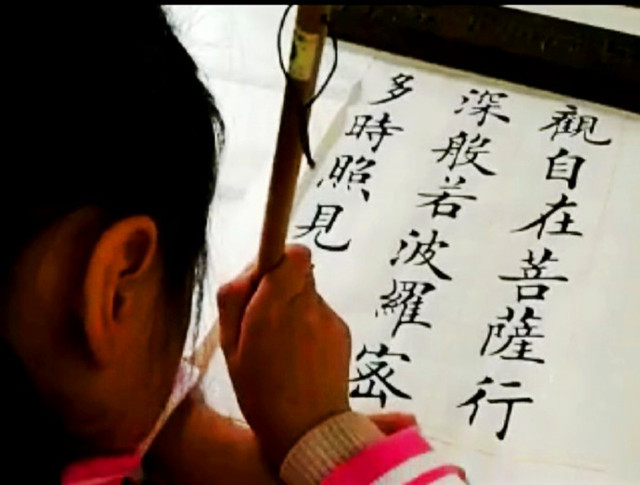 觀自在菩薩行
深般若波羅密
多時照見